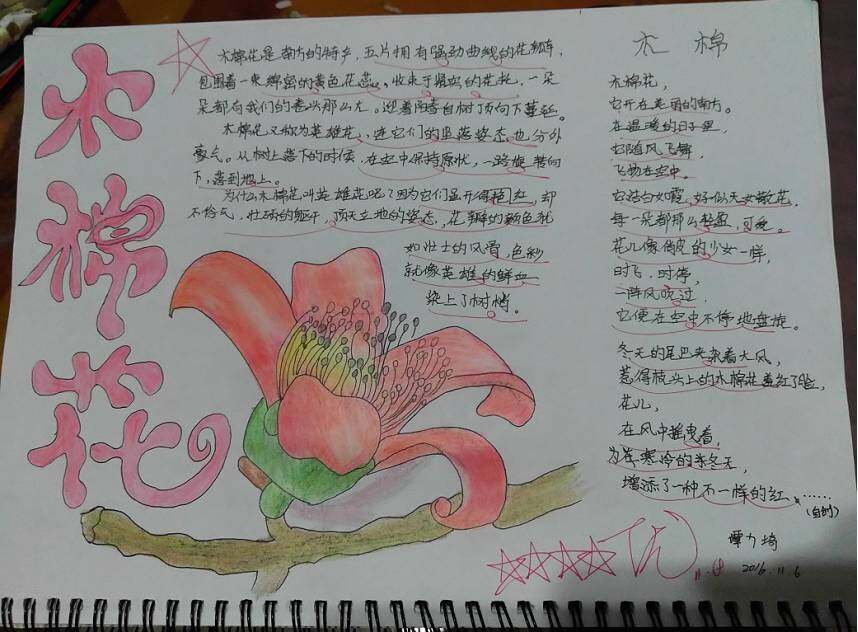 木棉花
木棉花是南方的特产，五片拥有强劲曲线的花瓣，
包围着一束绵密的黄色花蕊，收束于紧实的花托，一朵
朵都有我们的拳头那么大。迎着阳春自树顶向下蔓延。
木棉花又称为英雄花，连它们的坠落姿态也分外
豪气。从树上落下的时候，在空中保持原状，一路旋转向
下，落到地上。
为什么木棉花叫英雄花呢？因为它们显开得艳红，却
不俗气，壮硕的躯干，顶天立地的姿态，花瓣的颜色犹
如壮士的风骨，色彩
就像英雄的鲜血
染上了树梢。
木棉
木棉花，
它开在美丽的南方。
在温暖的日子里，
它随风飞舞，
飞扬在空中。
它洁白如霞，好似天女散花，
每一朵都那么轻盈，可爱。
花儿像俏皮的少女一样，
时飞，时停，
一阵风吹过，
它便在空中不停地盘旋。
冬天的尾巴夹杂着大风，
惹得枝头上的木棉花羞红了脸，
花儿，
在风中摇曳着，
为华寒冷的末冬天，
增添了一种不一样的红……
（自创）
覃力琦
2016.11.6
优
11.8